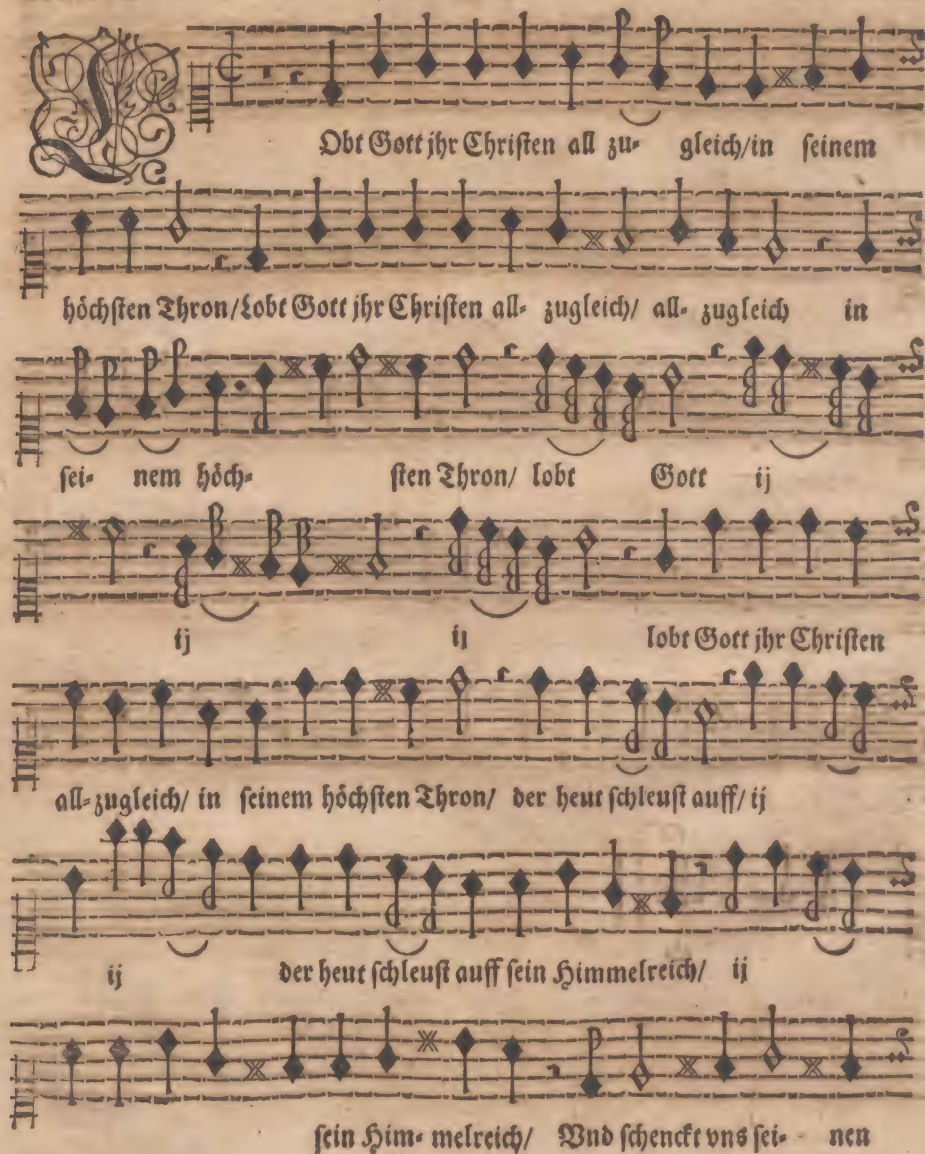 LObt Gott jhr Christen all zu- gleich/in seinem
höchsten Thron/Lobt Gott jhr Christen all- zugleich/ all- zugleich in
sei- nem höch- sten Thron/ lobt Gott ij
ij ij lobt Gott jhr Christen
all-zugleich/ in seinem höchsten Thron/ der heut schleust auff/ ij
ij der heut schleust auff sein Himmelreich/ ij
sein Him- melreich/ Vnd schenckt vns sei- nen